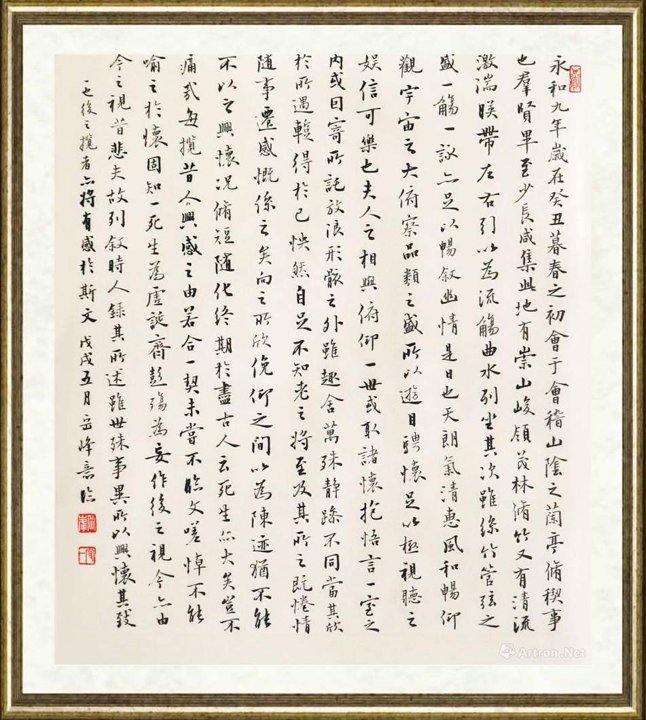 永和九年歲在癸丑暮春之初會于會稽山陰之蘭亭脩稧事
也羣賢畢至少長咸集此地有崇山峻領茂林脩竹又有清流
激湍暎帶左右引以為流觴曲水列坐其次雖絲竹管弦之
盛一觴一詠亦足以暢敘幽情是日也天朗氣清惠風和暢仰
觀宇宙之大俯察品類之盛所以遊目騁懷足以極視聽之
娛信可樂也夫人之相與俯仰一世或取諸懷抱悟言一室之
內或因寄所託放浪形骸之外雖趣舍萬殊靜躁不同當其欣
於所遇暫得於己怏然自足不知老之將至及其所之既惓情
隨事遷感慨係之矣向之所欣俛仰之間以為陳迹猶不能
不以之興懷況脩短隨化終期於盡古人云死生亦大矣豈不
痛哉每攬昔人興感之由若合一契未嘗不臨文嗟悼不能
喻之於懷固知一死生為虛誕齊彭殤為妄作後之視今亦由
今之視昔悲夫故列敘時人錄其所述雖世殊事異所以興懷其致
一也後之攬者亦將有感於斯文 戊戌五月岳峰臨
Artron.Net